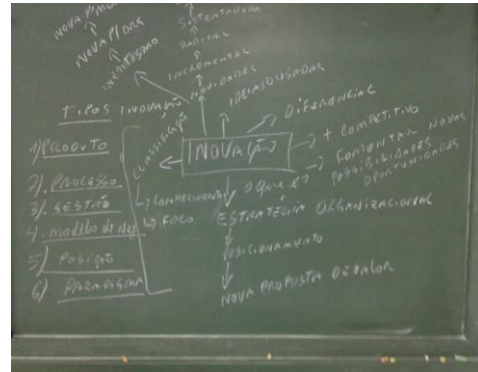 NOVA P/
NOVA P/ ORG
INEDITISMO
SUSTENTADORA
RADICAL
INCREMENTAL
NOVIDADES
IDEIAS OUSADAS
DIFERENCIAL
+ COMPETITIVO
FOMENTAR NOVAS
POSSIBILIDADES
OPORTUNIDADES
TIPOS INOVAÇÃO
1) PRODUTO
2) PROCESSO
3) GESTÃO
4. modelo de Neg
5) POSIÇÃO
6) PARADIGMA
CLASSIFICAÇÃO
→ CONHECIMENTO
→ FOCO
INOVAÇÃO
O que é?
ESTRATÉGIA ORGANIZACIONAL
POSICIONAMENTO
NOVA PROPOSTA DE VALOR